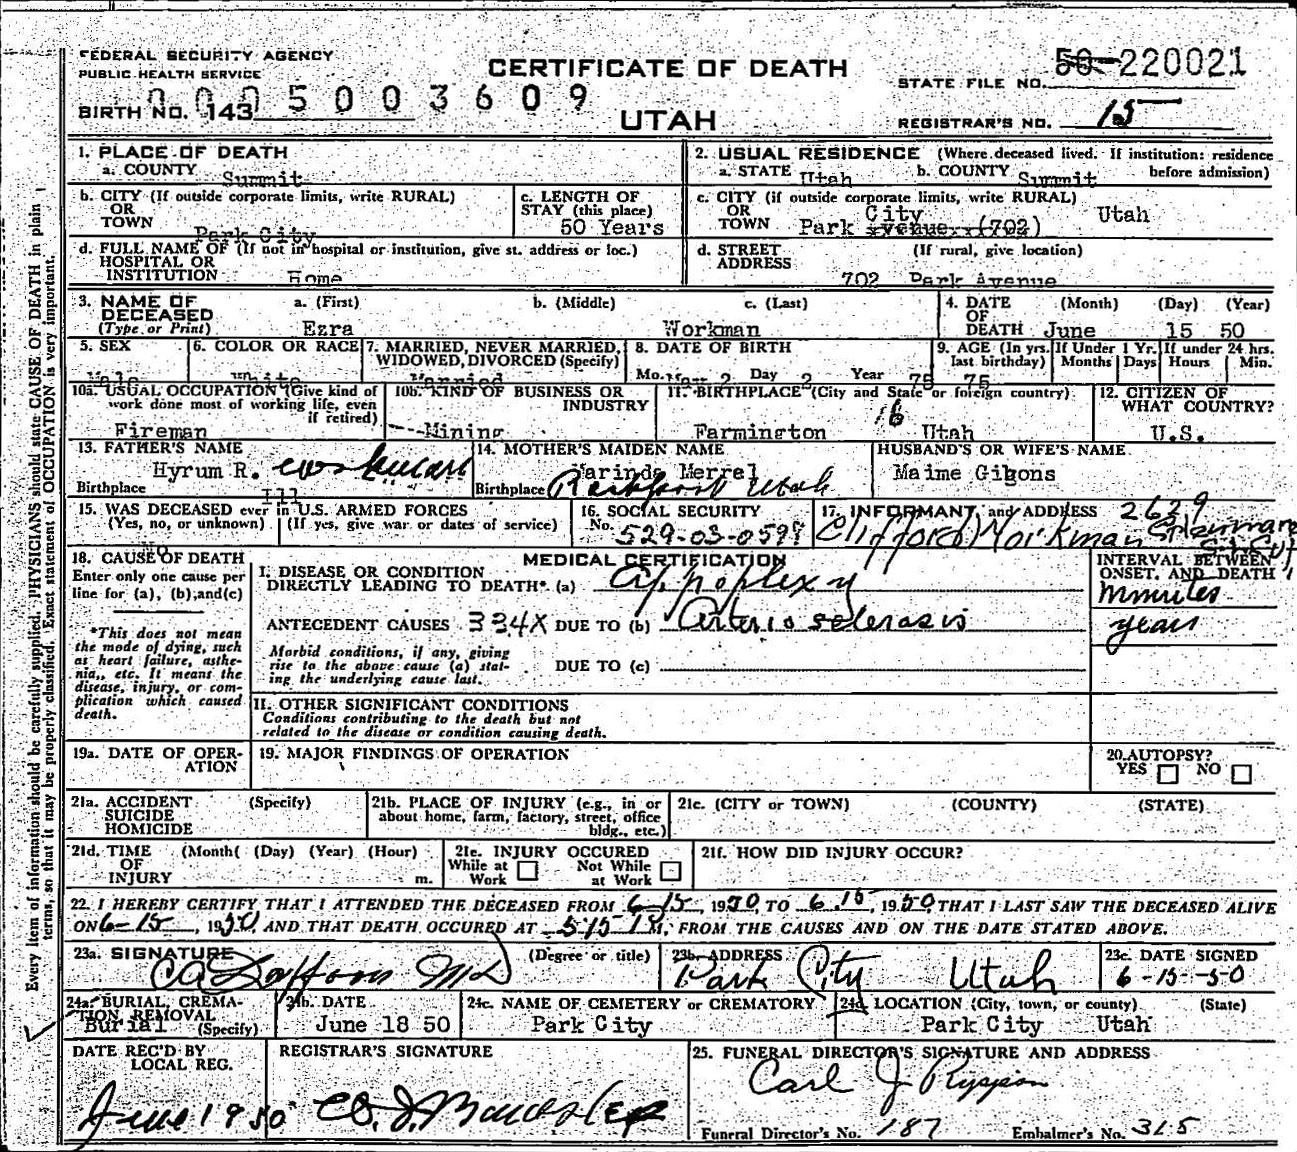 FEDERAL SECURITY AGENCY
PUBLIC HEALTH SERVICE
BIRTH NO. 143 0005003609
CERTIFICATE OF DEATH
UTAH
STATE FILE NO. 50-220021
REGISTRAR'S NO. 15
Every item of information should be carefully supplied. PHYSICIANS should state CAUSE OF DEATH in plain
terms, so that it may be properly classified. Exact statement of OCCUPATION is very important.
1. PLACE OF DEATH
a. COUNTY Summit
2. USUAL RESIDENCE (Where deceased lived. If institution: residence
a. STATE Utah b. COUNTY Summit before admission)
b. CITY (If outside corporate limits, write RURAL)
OR
TOWN Park City
c. LENGTH OF
STAY (this place)
50 Years
c. CITY (if outside corporate limits, write RURAL)
OR City Utah
TOWN Park Avenue (702)
d. FULL NAME OF (If not in hospital or institution, give st. address or loc.)
HOSPITAL OR
INSTITUTION Home
d. STREET (If rural, give location)
ADDRESS
702 Park Avenue
3. NAME OF a. (First) b. (Middle) c. (Last)
DECEASED
(Type or Print) Ezra Workman
4. DATE (Month) (Day) (Year)
OF
DEATH June 15 50
5. SEX
Male
6. COLOR OR RACE
White
7. MARRIED, NEVER MARRIED,
WIDOWED, DIVORCED (Specify)
Married
8. DATE OF BIRTH
Mo. May 2 Day 2 Year 75
9. AGE (In yrs. If Under 1 Yr. If under 24 hrs.
last birthday) Months Days Hours Min.
75
10a. USUAL OCCUPATION (Give kind of
work done most of working life, even
if retired)
Fireman
10b. KIND OF BUSINESS OR
INDUSTRY
Mining
11. BIRTHPLACE (City and State or foreign country)
16
Farmington Utah
12. CITIZEN OF
WHAT COUNTRY?
U.S.
13. FATHER'S NAME
Hyrum R. Workman
Birthplace Ill
14. MOTHER'S MAIDEN NAME
Marinda Merrel
Birthplace Rockport Utah
HUSBAND'S OR WIFE'S NAME
Maime Gibons
15. WAS DECEASED ever in U.S. ARMED FORCES
(Yes, no, or unknown) (If yes, give war or dates of service)
No
16. SOCIAL SECURITY
No. 529-03-0597
17. INFORMANT and ADDRESS 2629
Clifford Workman
18. CAUSE OF DEATH
Enter only one cause per
line for (a), (b), and (c)
*This does not mean
the mode of dying, such
as heart failure, asthe-
nia, etc. It means the
disease, injury, or com-
plication which caused
death.
MEDICAL CERTIFICATION
I. DISEASE OR CONDITION
DIRECTLY LEADING TO DEATH* (a) Appoplexy
ANTECEDENT CAUSES 334X DUE TO (b) Arterio sclerosis
Morbid conditions, if any, giving
rise to the above cause (a) stat-
ing the underlying cause last.
DUE TO (c)
INTERVAL BETWEEN
ONSET AND DEATH
minutes
years
II. OTHER SIGNIFICANT CONDITIONS
Conditions contributing to the death but not
related to the disease or condition causing death.
19a. DATE OF OPER-
ATION
19. MAJOR FINDINGS OF OPERATION
20. AUTOPSY?
YES NO
21a. ACCIDENT (Specify)
SUICIDE
HOMICIDE
21b. PLACE OF INJURY (e.g., in or
about home, farm, factory, street, office
bldg., etc.)
21c. (CITY or TOWN) (COUNTY) (STATE)
21d. TIME (Month( (Day) (Year) (Hour)
OF
INJURY m.
21e. INJURY OCCURED
While at Not While
Work at Work
21f. HOW DID INJURY OCCUR?
22. I HEREBY CERTIFY THAT I ATTENDED THE DECEASED FROM 6-15, 1950, TO 6.15, 1950, THAT I LAST SAW THE DECEASED ALIVE
ON 6-15, 1950, AND THAT DEATH OCCURED AT 5:15 PM, FROM THE CAUSES AND ON THE DATE STATED ABOVE.
23a. SIGNATURE (Degree or title)
MD
23b. ADDRESS
Park City Utah
23c. DATE SIGNED
6-15-50
24a. BURIAL, CREMA-
TION, REMOVAL
Burial (Specify)
24b. DATE
June 18 50
24c. NAME OF CEMETERY or CREMATORY
Park City
24d. LOCATION (City, town, or county) (State)
Park City Utah
DATE REC'D BY
LOCAL REG.
June 1950
REGISTRAR'S SIGNATURE
25. FUNERAL DIRECTOR'S SIGNATURE AND ADDRESS
Carl J
Funeral Director's No. 187 Embalmer's No. 315